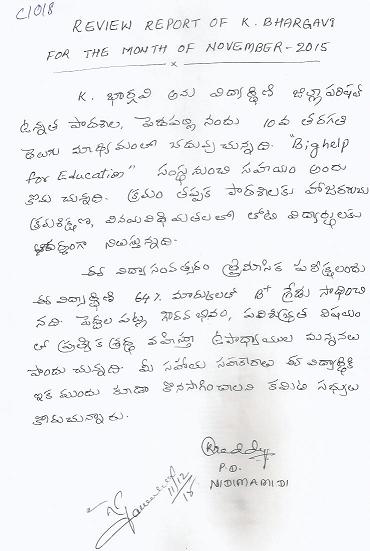 C1018
REVIEW REPORT OF K. BHARGAVI
FOR THE MONTH OF NOVEMBER - 2015
x
K. భార్గవి అను విద్యార్థిణి జిల్లాపరిషత్
ఉన్నత పాఠశాల, నందు 10వ తరగతి
తెలుగు మాధ్యమంలో చదువుచున్నది. "Big help
for Education" సంస్థ నుంచి సహాయం అందు
కొను చున్నది. క్రమం తప్పక పాఠశాలకు హాజరగుట
క్రమశిక్షణ, తోటి విద్యార్థులకు
ఆదర్శంగా నిలుస్తున్నది.
ఈ విద్యాసంవత్సరం త్రైమాసిక పరీక్షలందు
ఈ విద్యార్థిణి 64% మార్కులతో B+ గ్రేడు సాధించి
నది. పెద్దల పట్ల గౌరవ భావం, పరిశుభ్రత విషయం
లో ప్రత్యేక శ్రద్ధ వహిస్తూ ఉపాధ్యాయుల మన్ననలు
పొందు చున్నది. మీ సహాయ సహకారాలు ఈ విద్యార్థికి
ఇక ముందు కూడా కొనసాగించాలని కమిటి సభ్యులు
కోరుచున్నారు.
P.D.
NIDIMAMIDI
11/12
15